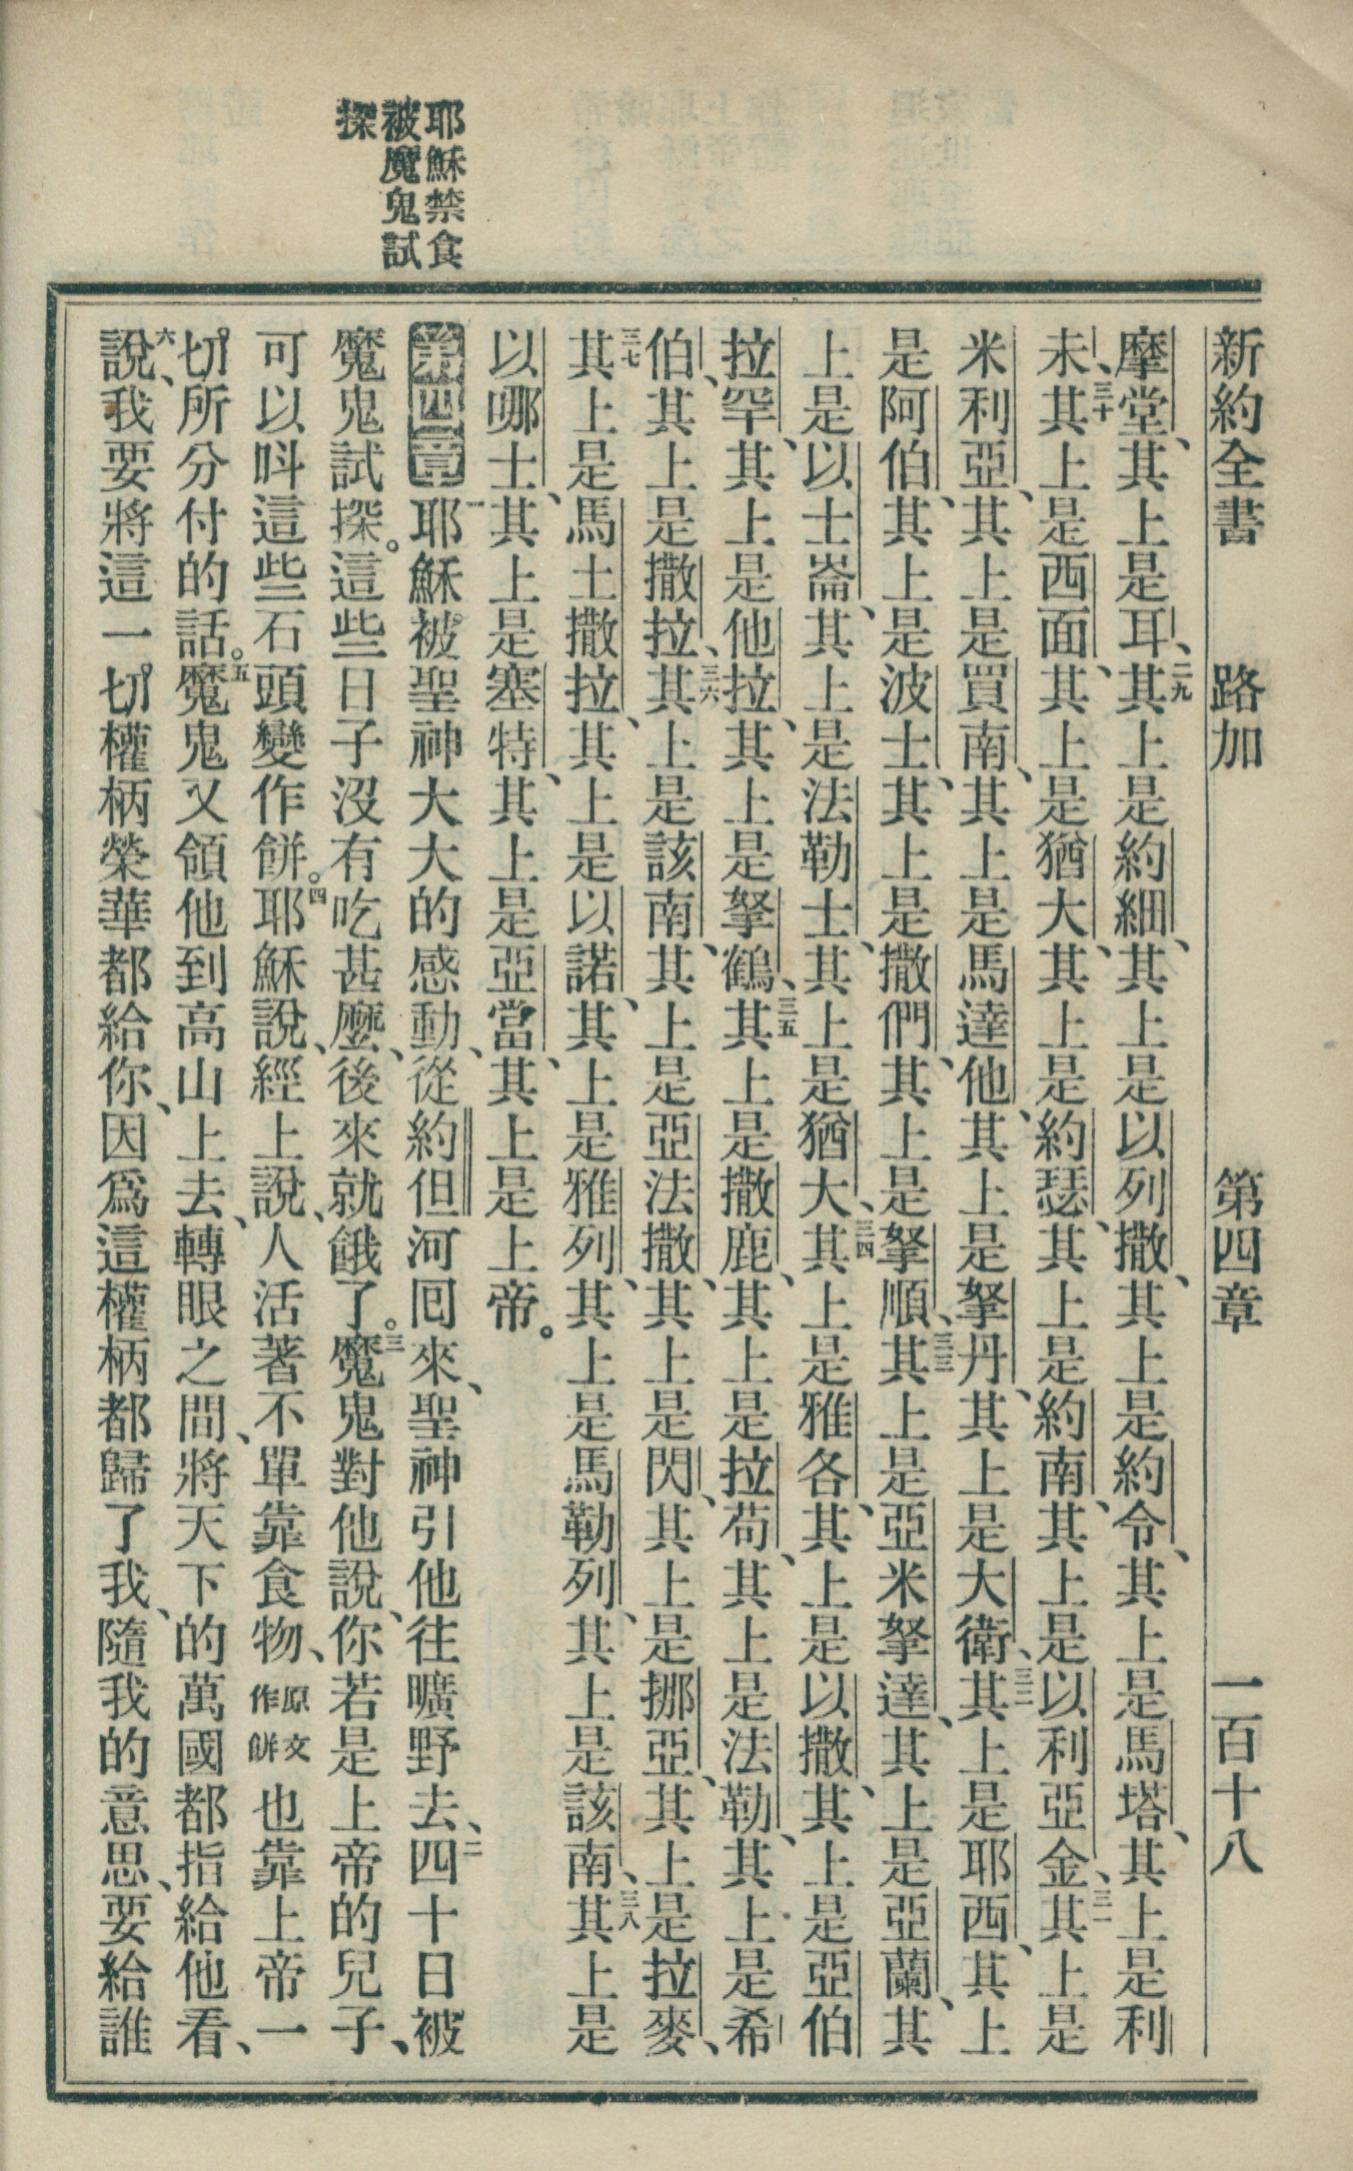 耶穌禁食
被魔鬼試
探
新約全書　路加　第四章　一百十八
摩堂、其上是耳、二九其上是約細、其上是以列撒、其上是約令、其上是馬塔、其上是利
未、三十其上是西面、其上是猶大、其上是約瑟、其上是約南、其上是以利亞金、三一其上是
米利亞、其上是買南、其上是馬達他、其上是拏丹、其上是大衛、三二其上是耶西、其上
是阿伯、其上是波士、其上是撒們、其上是拏順、三三其上是亞米拏達、其上是亞蘭、其
上是以士崙、其上是法勒士、其上是猶大、三四其上是雅各、其上是以撒、其上是亞伯
拉罕、其上是他拉、其上是拏鶴、三五其上是撒鹿、其上是拉苟、其上是法勒、其上是希
伯、其上是撒拉、三六其上是該南、其上是亞法撒、其上是閃、其上是挪亞、其上是拉麥、
三七其上是馬土撒拉、其上是以諾、其上是雅列、其上是馬勒列、其上是該南、三八其上是
以哪士、其上是塞特、其上是亞當、其上是上帝。
第四章　一耶穌被聖神大大的感動、從約但河囘來、聖神引他往曠野去、二四十日被
魔鬼試探。這些日子沒有吃甚麼、後來就餓了。三魔鬼對他說、你若是上帝的兒子、
可以呌這些石頭變作餅。四耶穌說、經上說、人活著不單靠食物、原文作餅也靠上帝一
切所分付的話。五魔鬼又領他到高山上去、轉眼之間、將天下的萬國都指給他看、
六說、我要將這一切權柄榮華都給你、因爲這權柄都歸了我、隨我的意思、要給誰